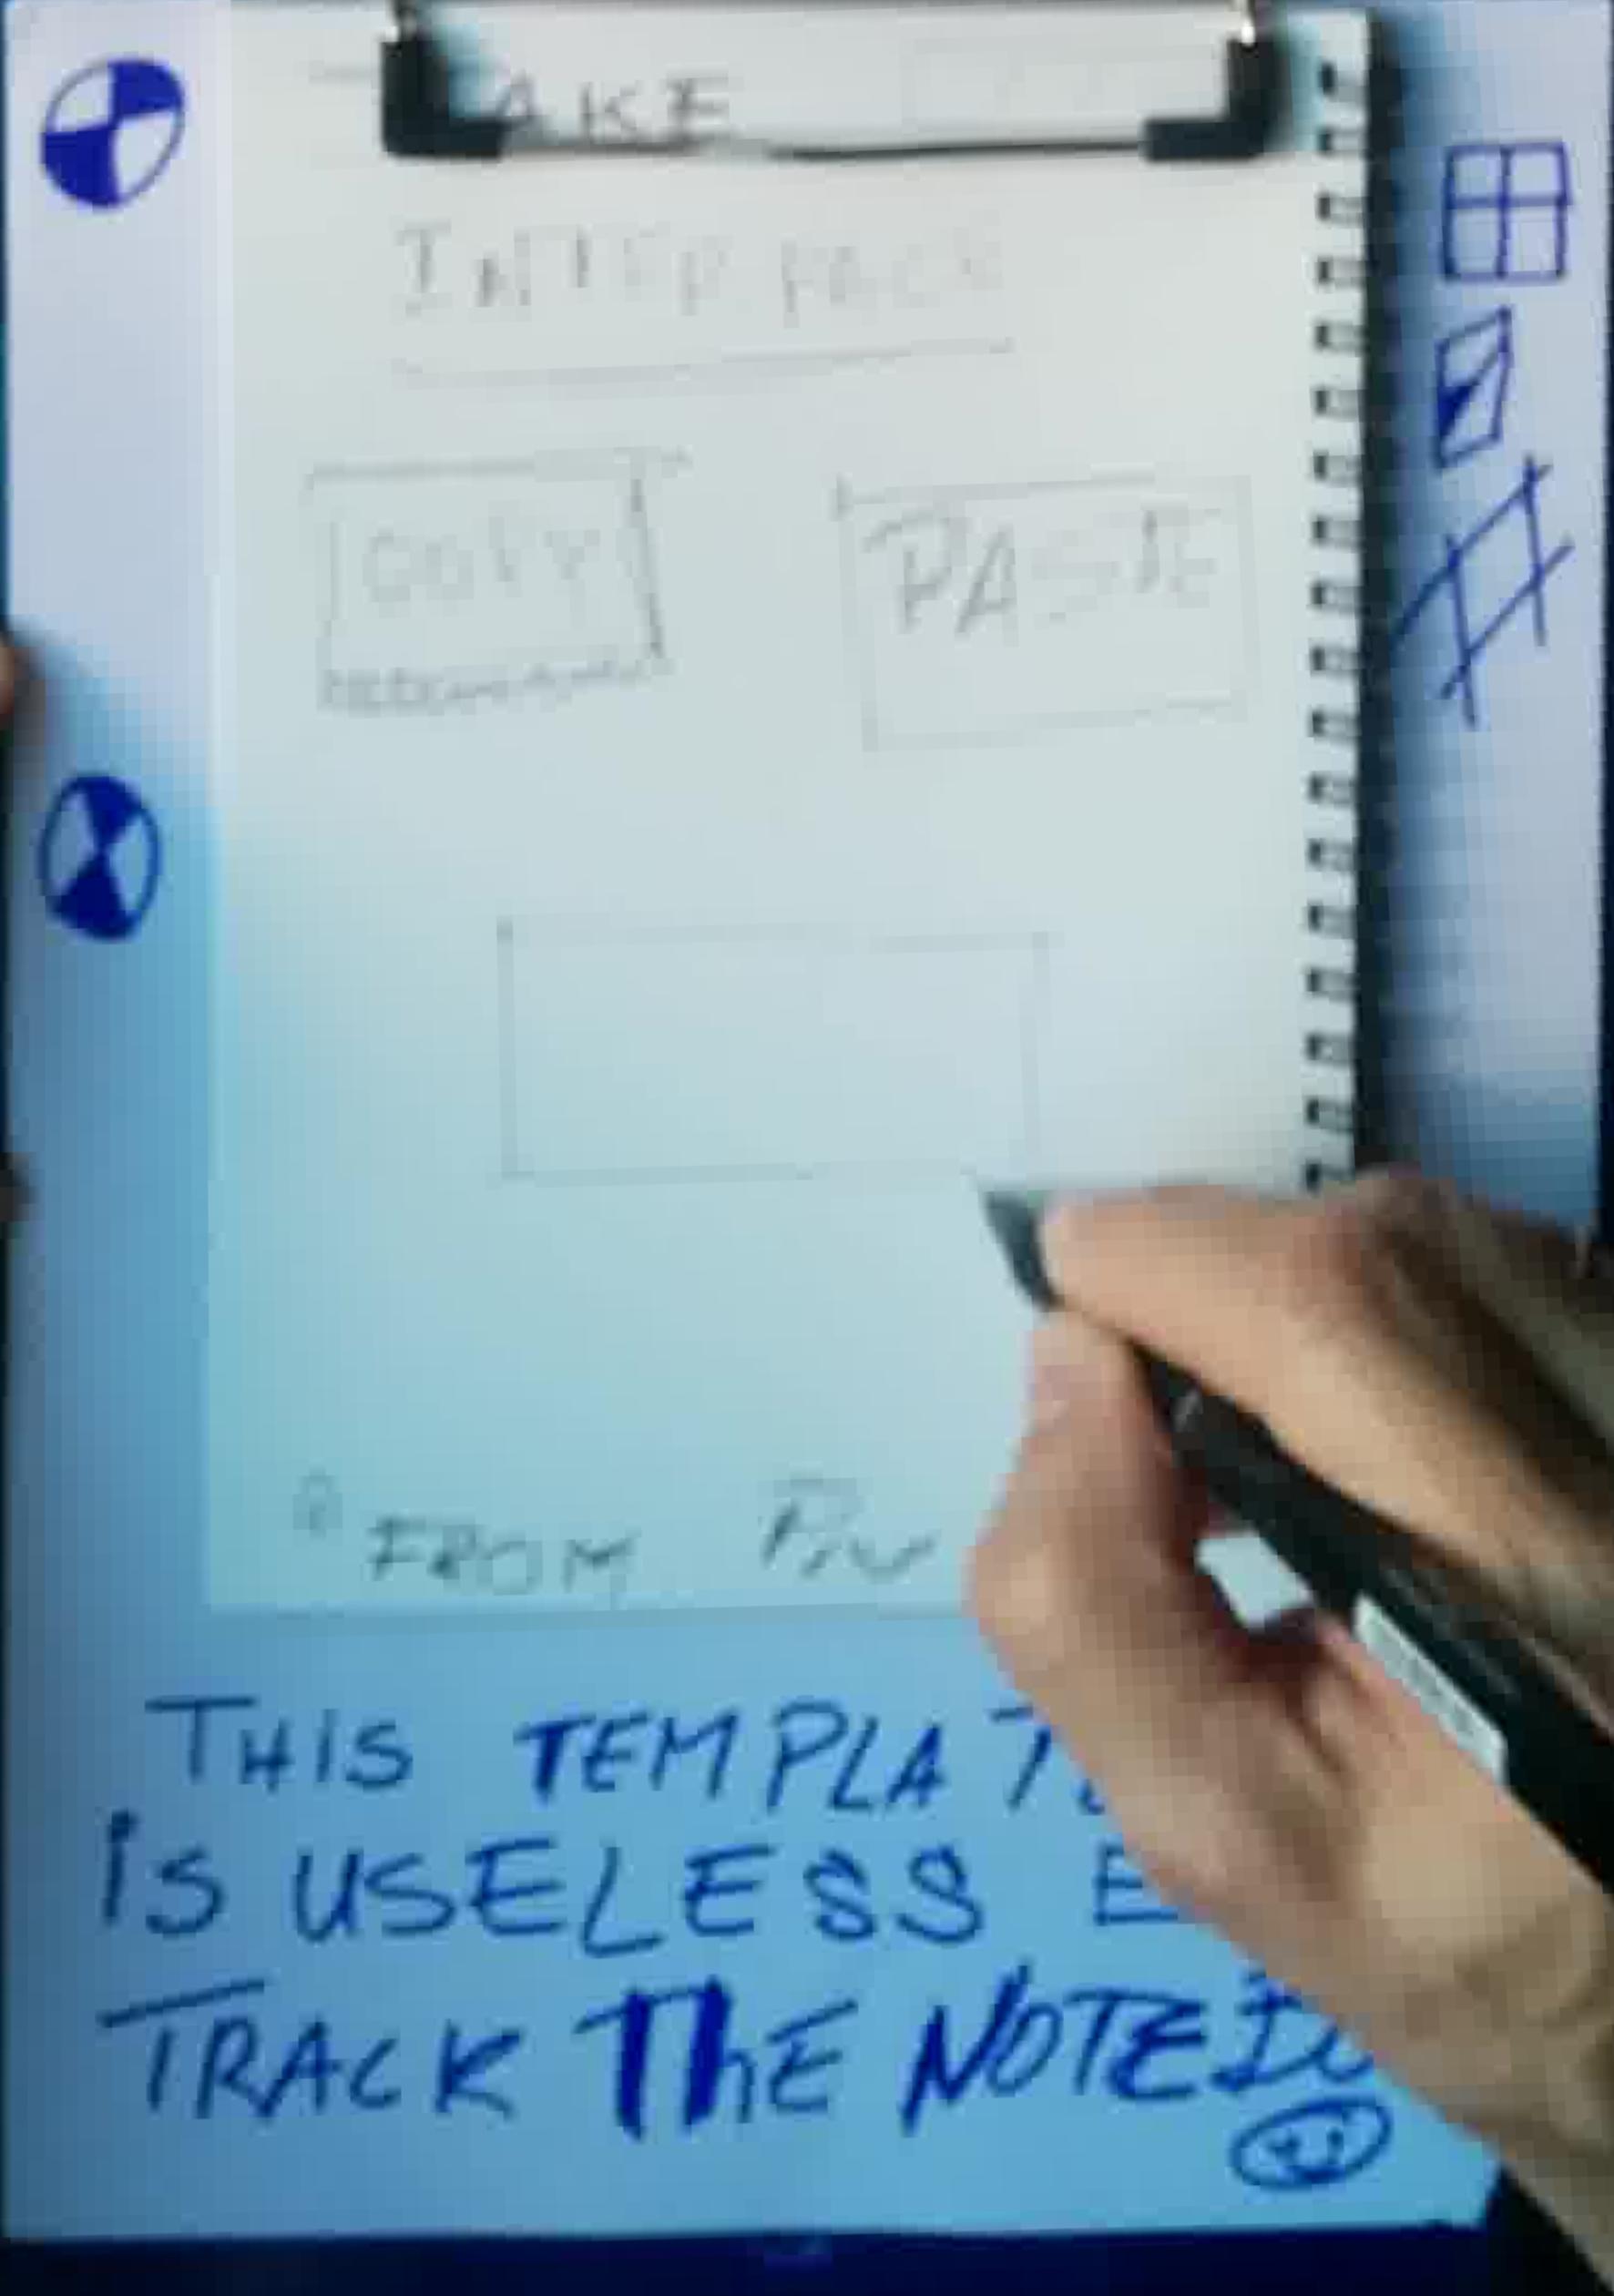 AKE
INTERFACE
COPY PASTE
FROM
THIS TEMPLAT
is USELESS E
TRACK ThE NOTEB